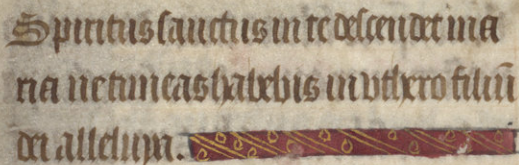 Spiritus sanctus in te descendet ma
ria ne timeas habebis in uthero filiū
dei alleluya.